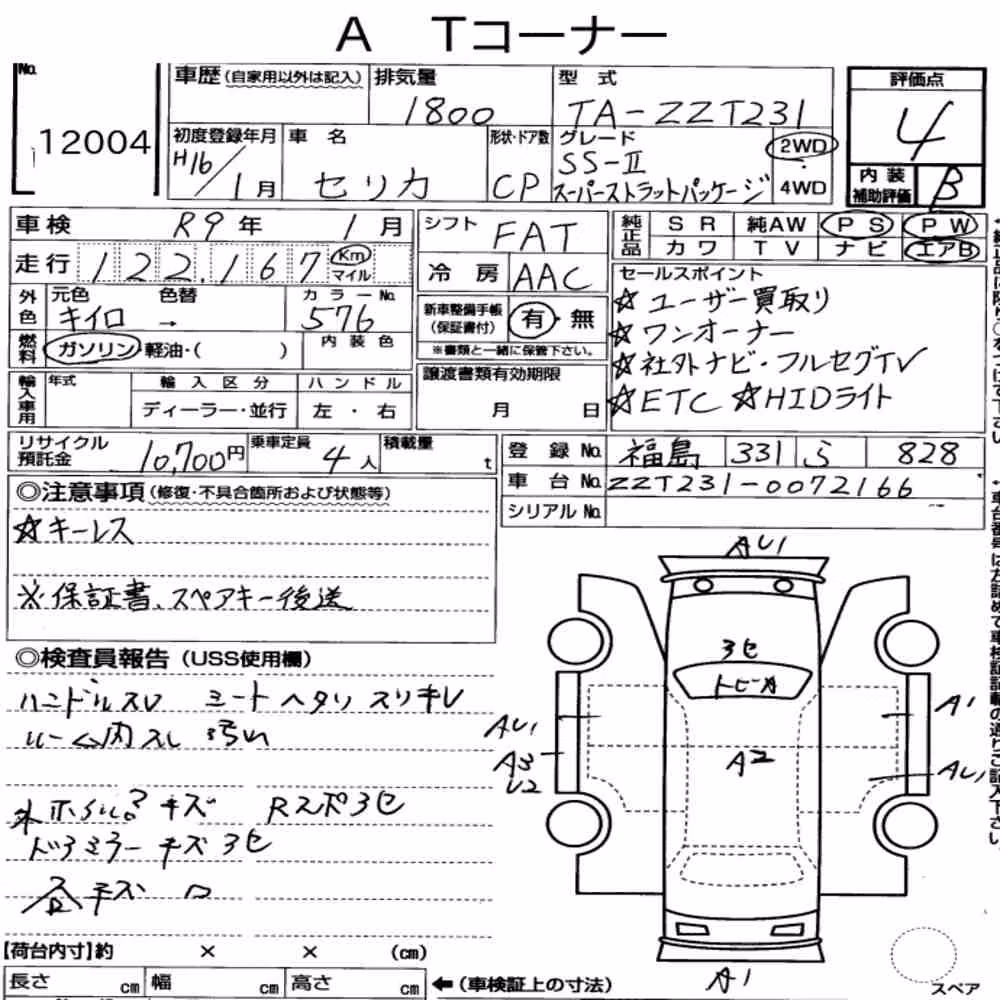 A Tコーナー
No.
12004
車歴 (自家用以外は記入)
排気量
1800
型 式
TA-ZZT231
評価点
4
初度登録年月
H16/1月
車 名
セリカ
形状・ドア数
CP
グレード
SS-II
スーパーストラットパッケージ
2WD
・
4WD
内装
補助評価
B
車検 R9年 1月
シフト FAT
純正品
SR 純AW PS PW
カワ TV ナビ エアB
走行 122,167 Km マイル
冷房 AAC
セールスポイント
☆ユーザー買取り
☆ワンオーナー
☆社外ナビ・フルセグTV
☆ETC ☆HIDライト
外色
元色 色替 カラーNo.
キイロ → 576
新車整備手帳
(保証書付)
有・無
※書類と一緒に保管下さい。
燃料
ガソリン・軽油・( )
内装色
輸入車用
年式 輸入区分 ハンドル
ディーラー・並行 左・右
譲渡書類有効期限
月 日
リサイクル
預託金
10,700円
乗車定員 4人
積載量 t
登録No. 福島 331 ら 828
車台No. ZZT231-0072166
シリアルNo.
◎注意事項 (修復・不具合箇所および状態等)
☆キーレス
※保証書、スペアキー後送
◎検査員報告 (USS使用欄)
ハンドルスレ シートヘタリ スリキレ
ルーム内スレ 汚れ
キズ Rスポ3セ
ドアミラーキズ3セ
AU1
3セ
トビA
AU1
A3
U2
A2
A1
AU1
A1
スペア
【荷台内寸】約 × × (cm)
長さ cm 幅 cm 高さ cm
←(車検証上の寸法)